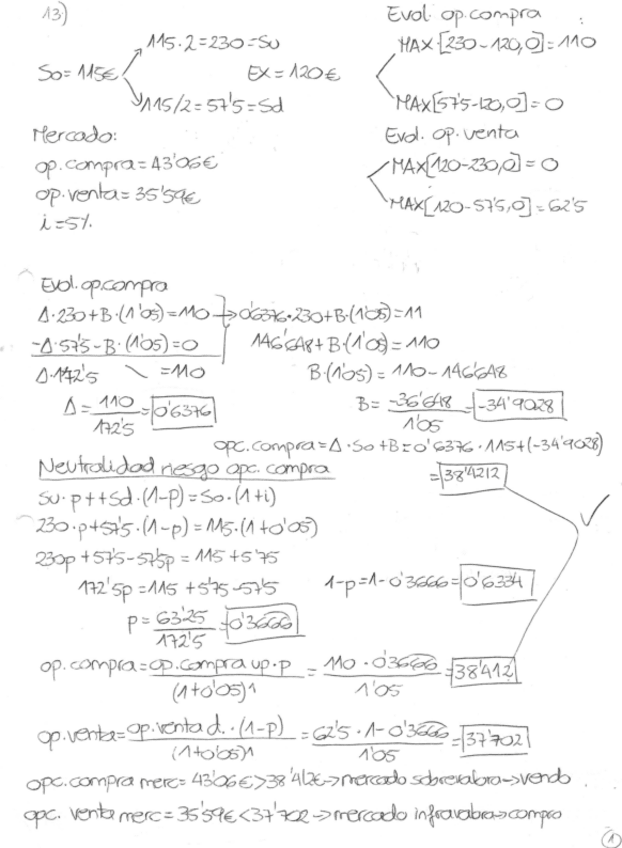 13)
115·2=230=Su
So=115€
EX=120€
115/2=57'5=Sd
Evol. op.compra :
MAX·[230-120,0]=110
MAX[57'5-120,0]=0
Mercado:
op.compra=43'06€
op.venta=35'59€
i=5%
Evol. op.venta
MAX[120-230,0]=0
MAX[120-57'5,0]=62'5
Evol.op.compra
Δ·230+B·(1'05)=110→0'6376·230+B·(1'05)=11
-Δ·57'5-B·(1'05)=0
146'648+B·(1'05)=110
Δ·172'5 \ =110
B·(1'05)=110-146'648
Δ=110/172'5=0'6376
B=-36'648/1'05=-34'9028
opc.compra=Δ·So+B=0'6376·115+(-34'9028)
=38'4212
Neutralidad riesgo opc.compra
Su·p++Sd·(1-p)=So·(1+i)
230·p+57'5·(1-p)=115·(1+0'05)
230p+57'5-57'5p=115+5'75
172'5p=115+5'75-57'5
1-p=1-0'3666=0'6334
p=63'25/172'5=0'3666
op.compra=op.compra up·p/(1+0'05)1=110·0'3666/1'05=38'412
op.venta=op.venta d.·(1-p)/(1+0'05)1=62'5·1-0'3666/1'05=37'702
opc.compra merc=43'06€>38'412€→mercado sobrevalora→vendo
opc. venta merc=35'59€<37'702→mercado infravalora→compro
1